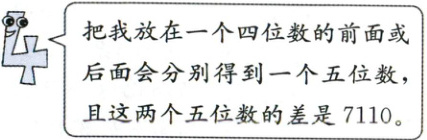 4
把我放在一个四位数的前面或
后面会分别得到一个五位数，
且这两个五位数的差是 7110。